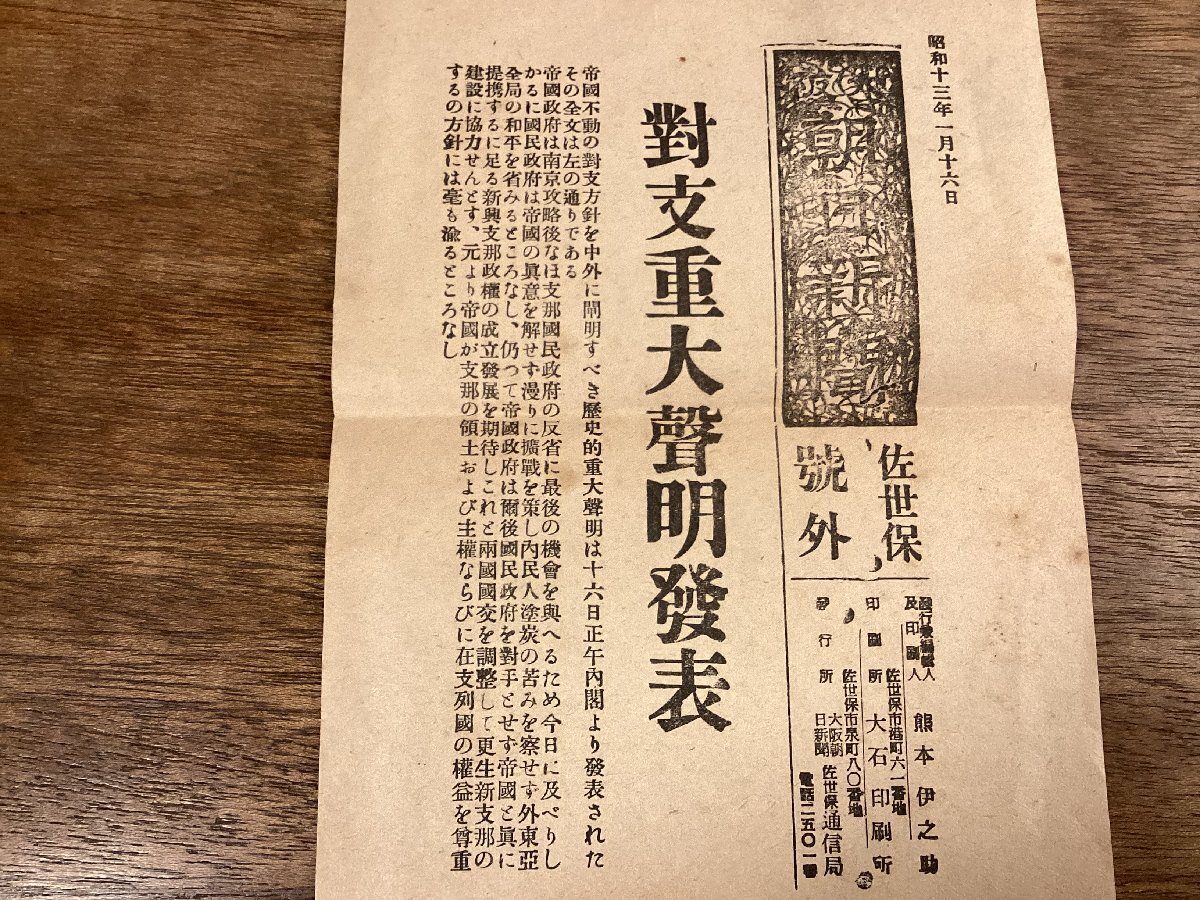 昭和十三年一月十六日
大阪朝日新聞
佐世保
號外
發行兼編輯人
及印刷人
熊本伊之助
佐世保市港町六一番地
印刷所 大石印刷所
佐世保市泉町八〇番地
發行所 大阪朝日新聞 佐世保通信局
電話二五〇一番
對支重大聲明發表
帝國不動の對支方針を中外に闡明すべき歷史的重大聲明は十六日正午內閣より發表された
その全文は左の通りである
帝國政府は南京攻略後なほ支那國民政府の反省に最後の機會を與へるため今日に及べりし
かるに國民政府は帝國の眞意を解せず漫りに擴戰を策し內民人塗炭の苦みを察せず外東亞
全局の和平を省みるところなし、仍つて帝國政府は爾後國民政府を對手とせず帝國と眞に
提携するに足る新興支那政權の成立發展を期待しこれと兩國國交を調整して更生新支那の
建設に協力せんとす、元より帝國が支那の領土および主權ならびに在支列國の權益を尊重
するの方針には毫も渝るところなし